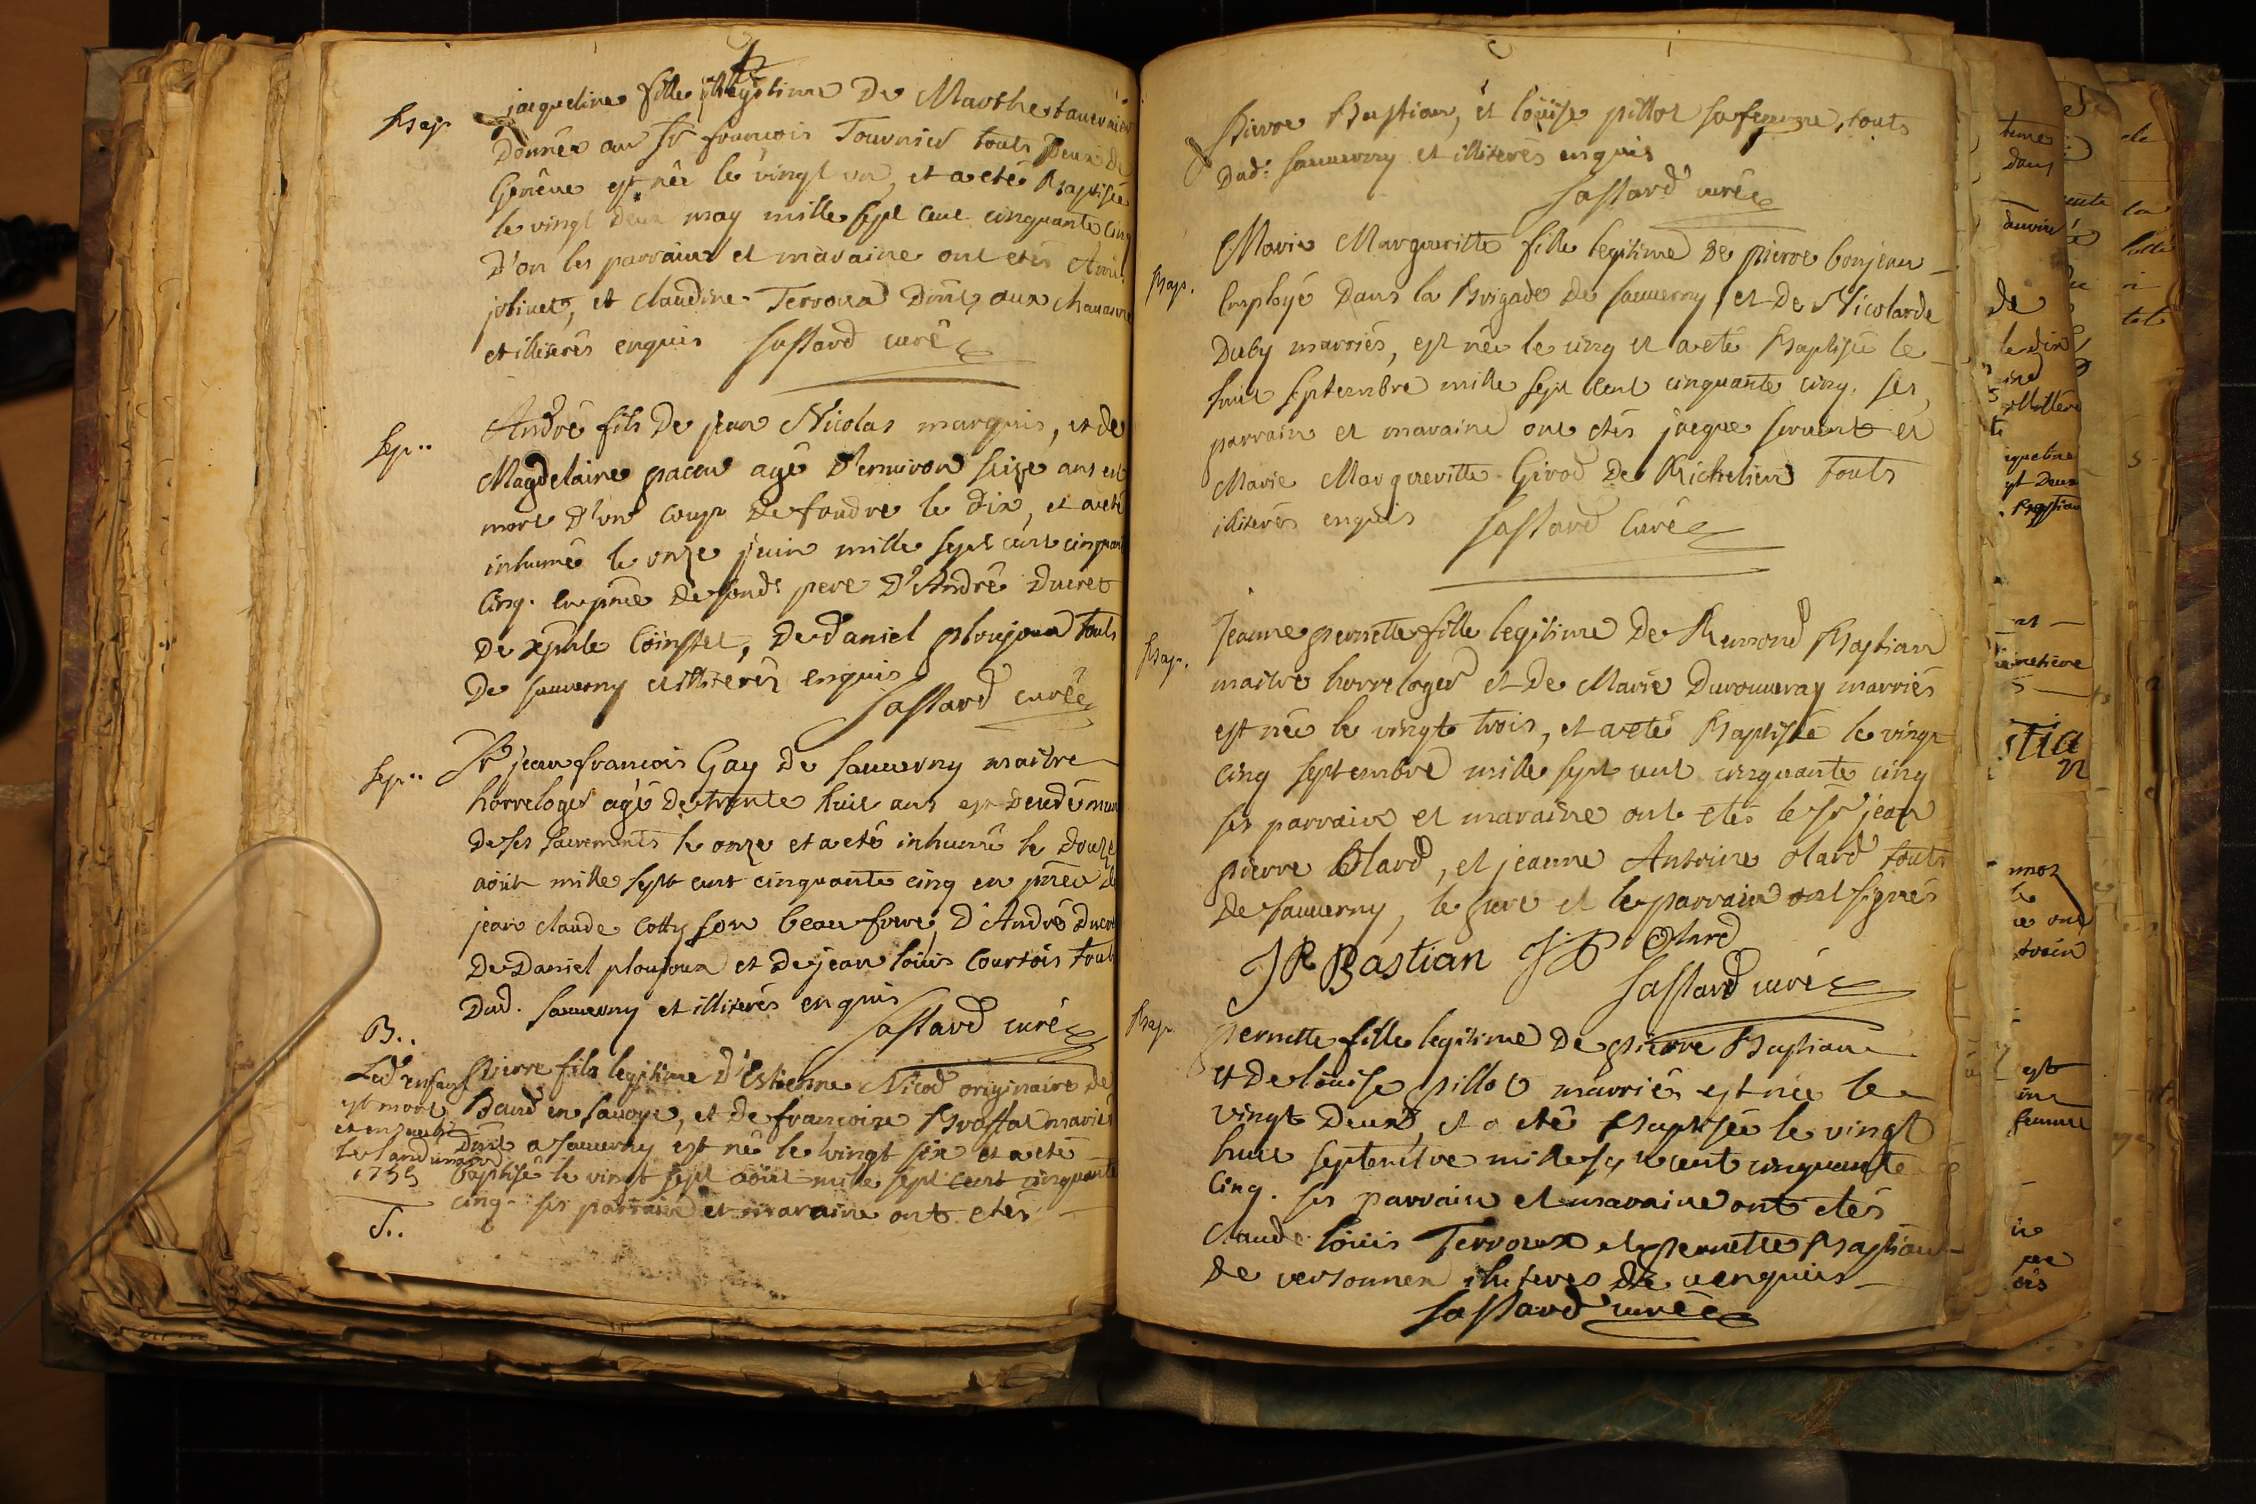 Bap.
jacqueline fille illegitime De Marthe tauernier
Donnée au Sr francois Tournier touts Deux De
Genêve est née le vingt un, et a eté Baptisée
le vingt deux may mille sept cent cinquante cinq
D'on les parrain et maraine ont etés Aimé
jolivet, et claudine Terroux Domts aux chavannes
et illiterés enquis Sassard curé
Sep..
André fils De jean Nicolas marquis, et de
Magdelaine pacou agé D'environ seize ans est
mort D'un coup de foudre le dix, et a eté
inhumé le onze juin mille sept cent cinquante
Cinq. en pnce De sond. pere D'André Ducret
De Coinstet, De Daniel ploujoux touts
De sauverny et illiterés enquis
Sassard curé
Sep..
Sr jean francois Gay de sauverny maitre
horreloger agé De trente huit ans est Decedé muni
De ses sacrements le onze et a eté inhumé le Douze
aôut mille sept cent cinquante cinq en pnce de
jean claude Cotty son beau frere, D'André Ducret
De Daniel ploujoux et De jean loüis Courtois touts
Dud. sauverny et illiterés enquis
Sassard curé
B..
Led enfant
est mort
1755
S..
Pierre fils legitime D'Estienne Nicod originaire de
en savoye, et de francoise Brossat mariés
Domt a sauverny est né le vingt six et a eté
baptisé le vingt sept aôut mille sept cent cinquante
cinq. ses parrain et maraine ont etés
Pierre Bastian, et loüise pillot sa femme, touts
Dud. sauverny et illiterés enquis
Sassard curé
Bap.
Marie Margueritte fille legitime De pierre bonjean
Employé Dans la Brigade de sauverny, et De Nicolarde
Duby marriés, est née le cinq et a eté Baptisée le
huit septembre mille sept cent cinquante cinq. ses
parrain et maraine ont etés jacque servent et
Marie Margueritte Girod De Richelieu touts
illiterés enquis Sassard Curé
Bap.
Jeanne pernette fille legitime De Remond Bastian
maitre horreloger et De Marie Durouveray marriés
est née le vingt trois, et a eté Baptisée le vingt
cinq septembre mille sept cent cinquante cinq
ses parrain et maraine ont etés le Sr jean
pierre Olard, et jeanne Antoine olard touts
De sauverny, le pere et le parrain ont signés
J R Bastian J P Olard
Sassard curé
Bap.
pernette fille legitime De pierre Bastian
et De loüise pillot marriés est née le
vingt Deux, et a eté Baptisée le vingt
huit septembre mille sept cent cinquante
Cinq. ses parrain et maraine ont etés
claude loüis Terroux et pernette Bastian
de versonnex illiteres de ce enquis
Sassard curé